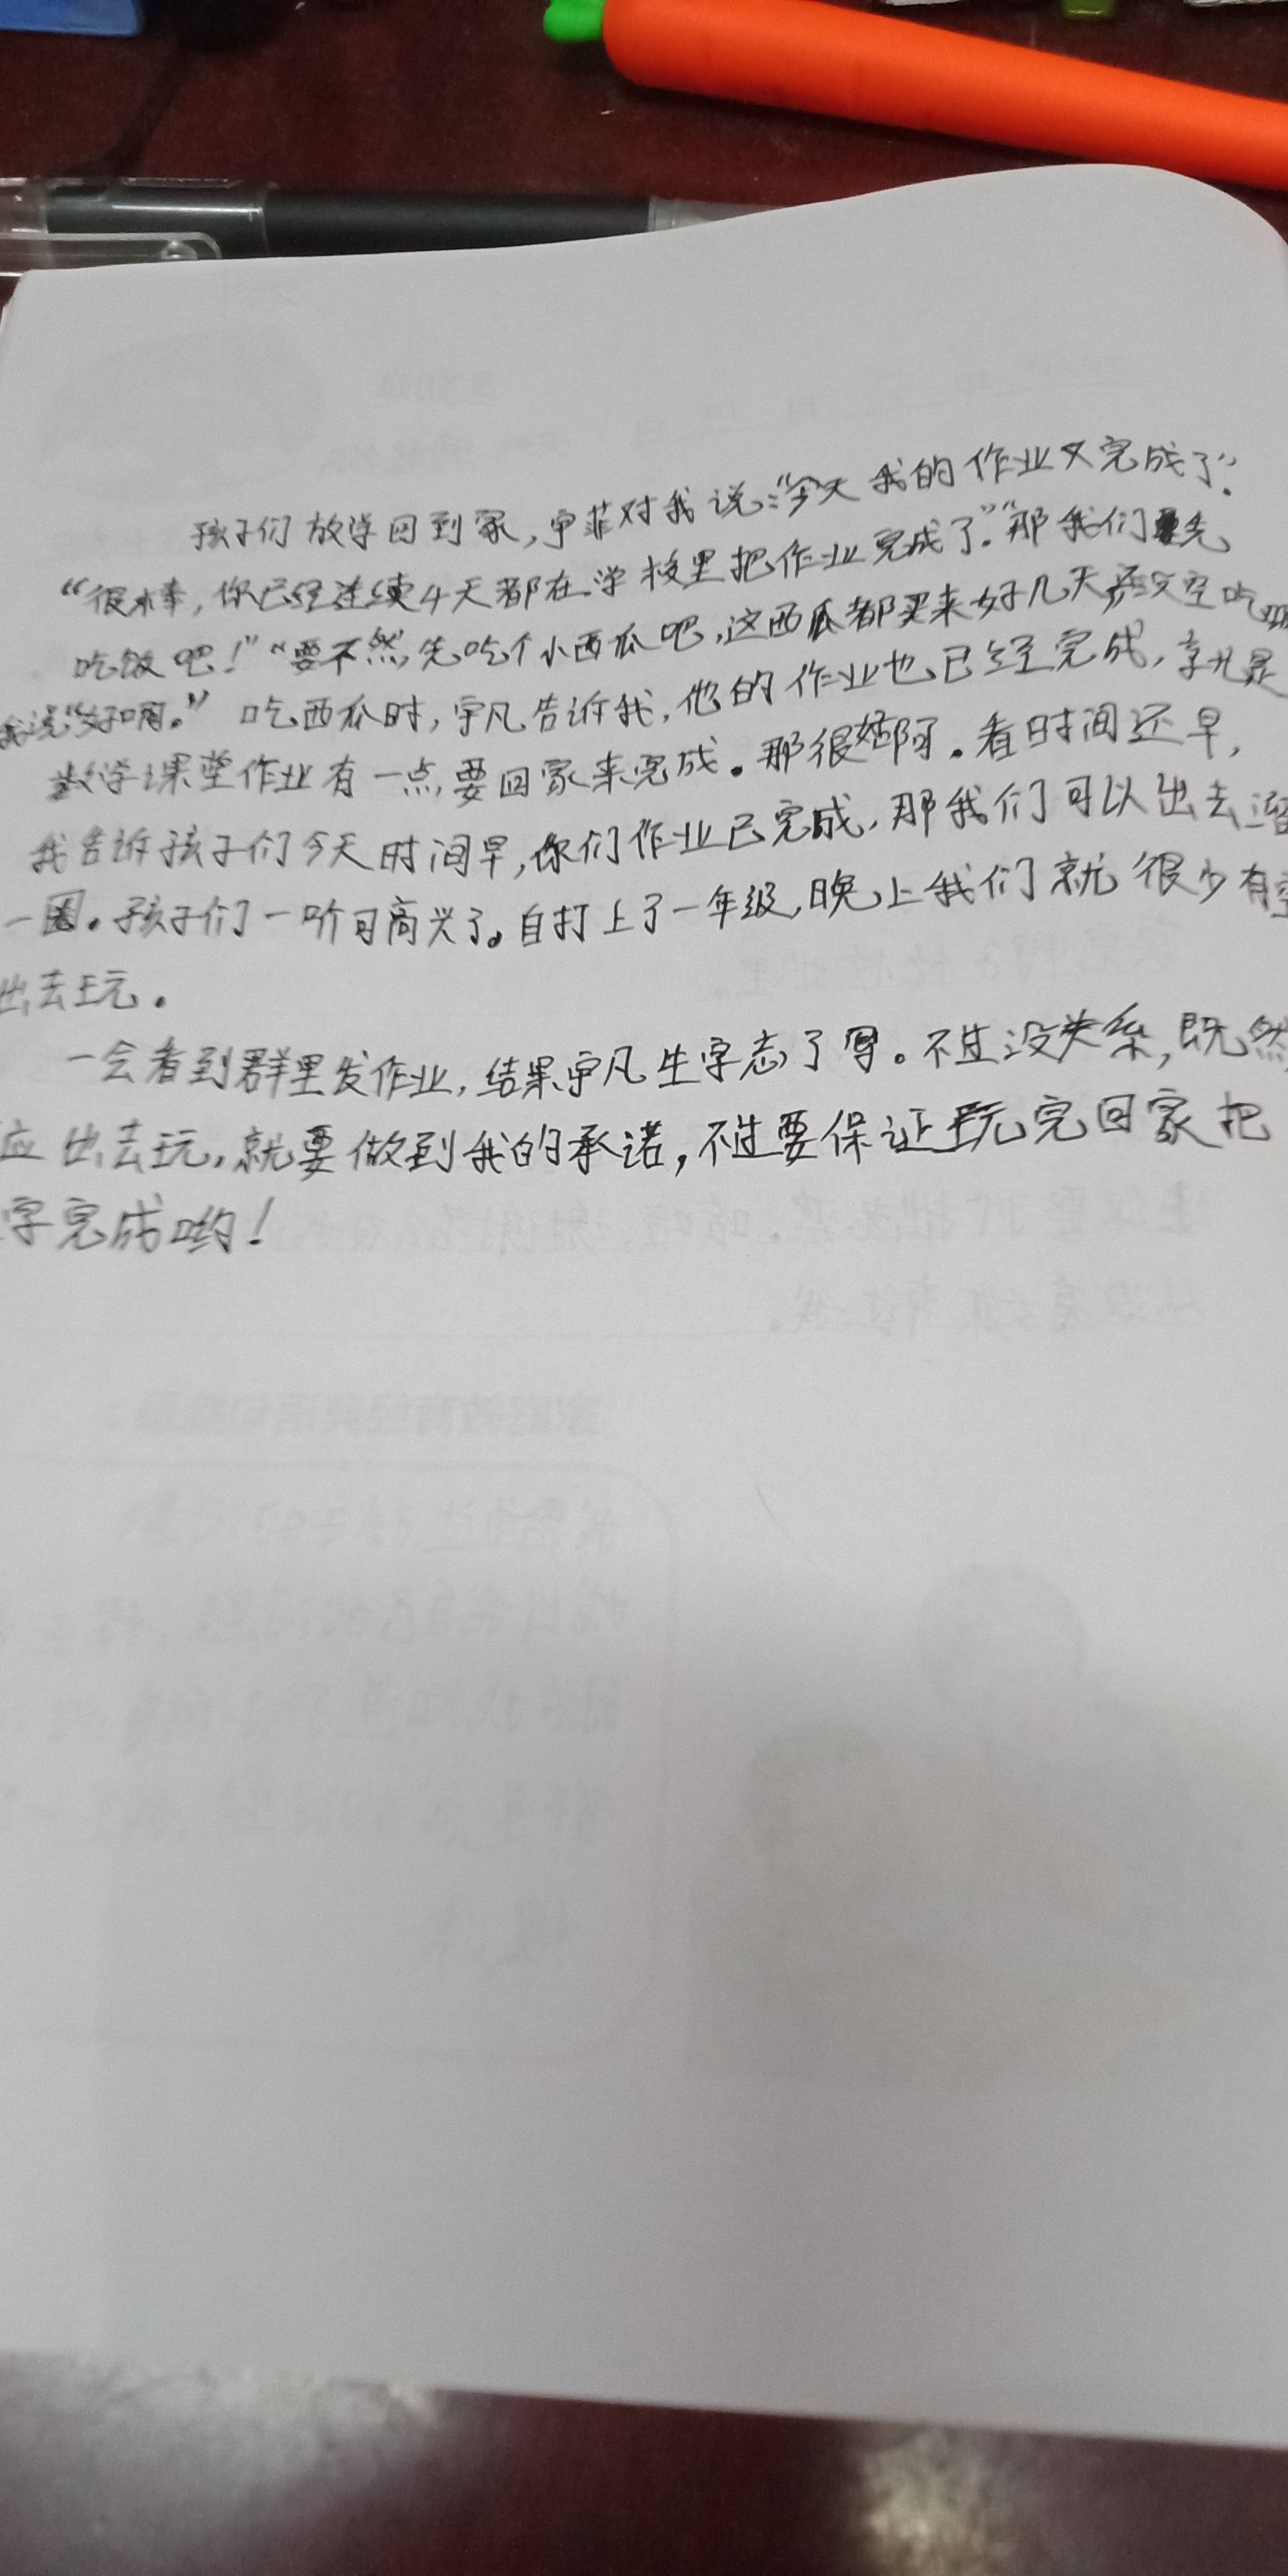 孩子们放学回到家，宇菲对我说:“今天我的作业又完成了”.
“很棒，你已经连续4天都在学校里把作业完成了.”“那我们先
吃饭吧！”“要不然，先吃个小西瓜吧，这西瓜都买来好几天没空吃
我说“好啊。” 吃西瓜时，宇凡告诉我，他的作业也已经完成，就是
数学课堂作业有一点要回家来完成。那很好啊。看时间还早，
我告诉孩子们今天时间早，你们作业已完成，那我们可以出去溜
一圈。孩子们一听可高兴了。自打上了一年级，晚上我们就很少有空
出去玩。
一会看到群里发作业，结果宇凡生字忘了写。不过没关系，既然
应出去玩，就要做到我的承诺，不过要保证玩完回家把
字完成哟！